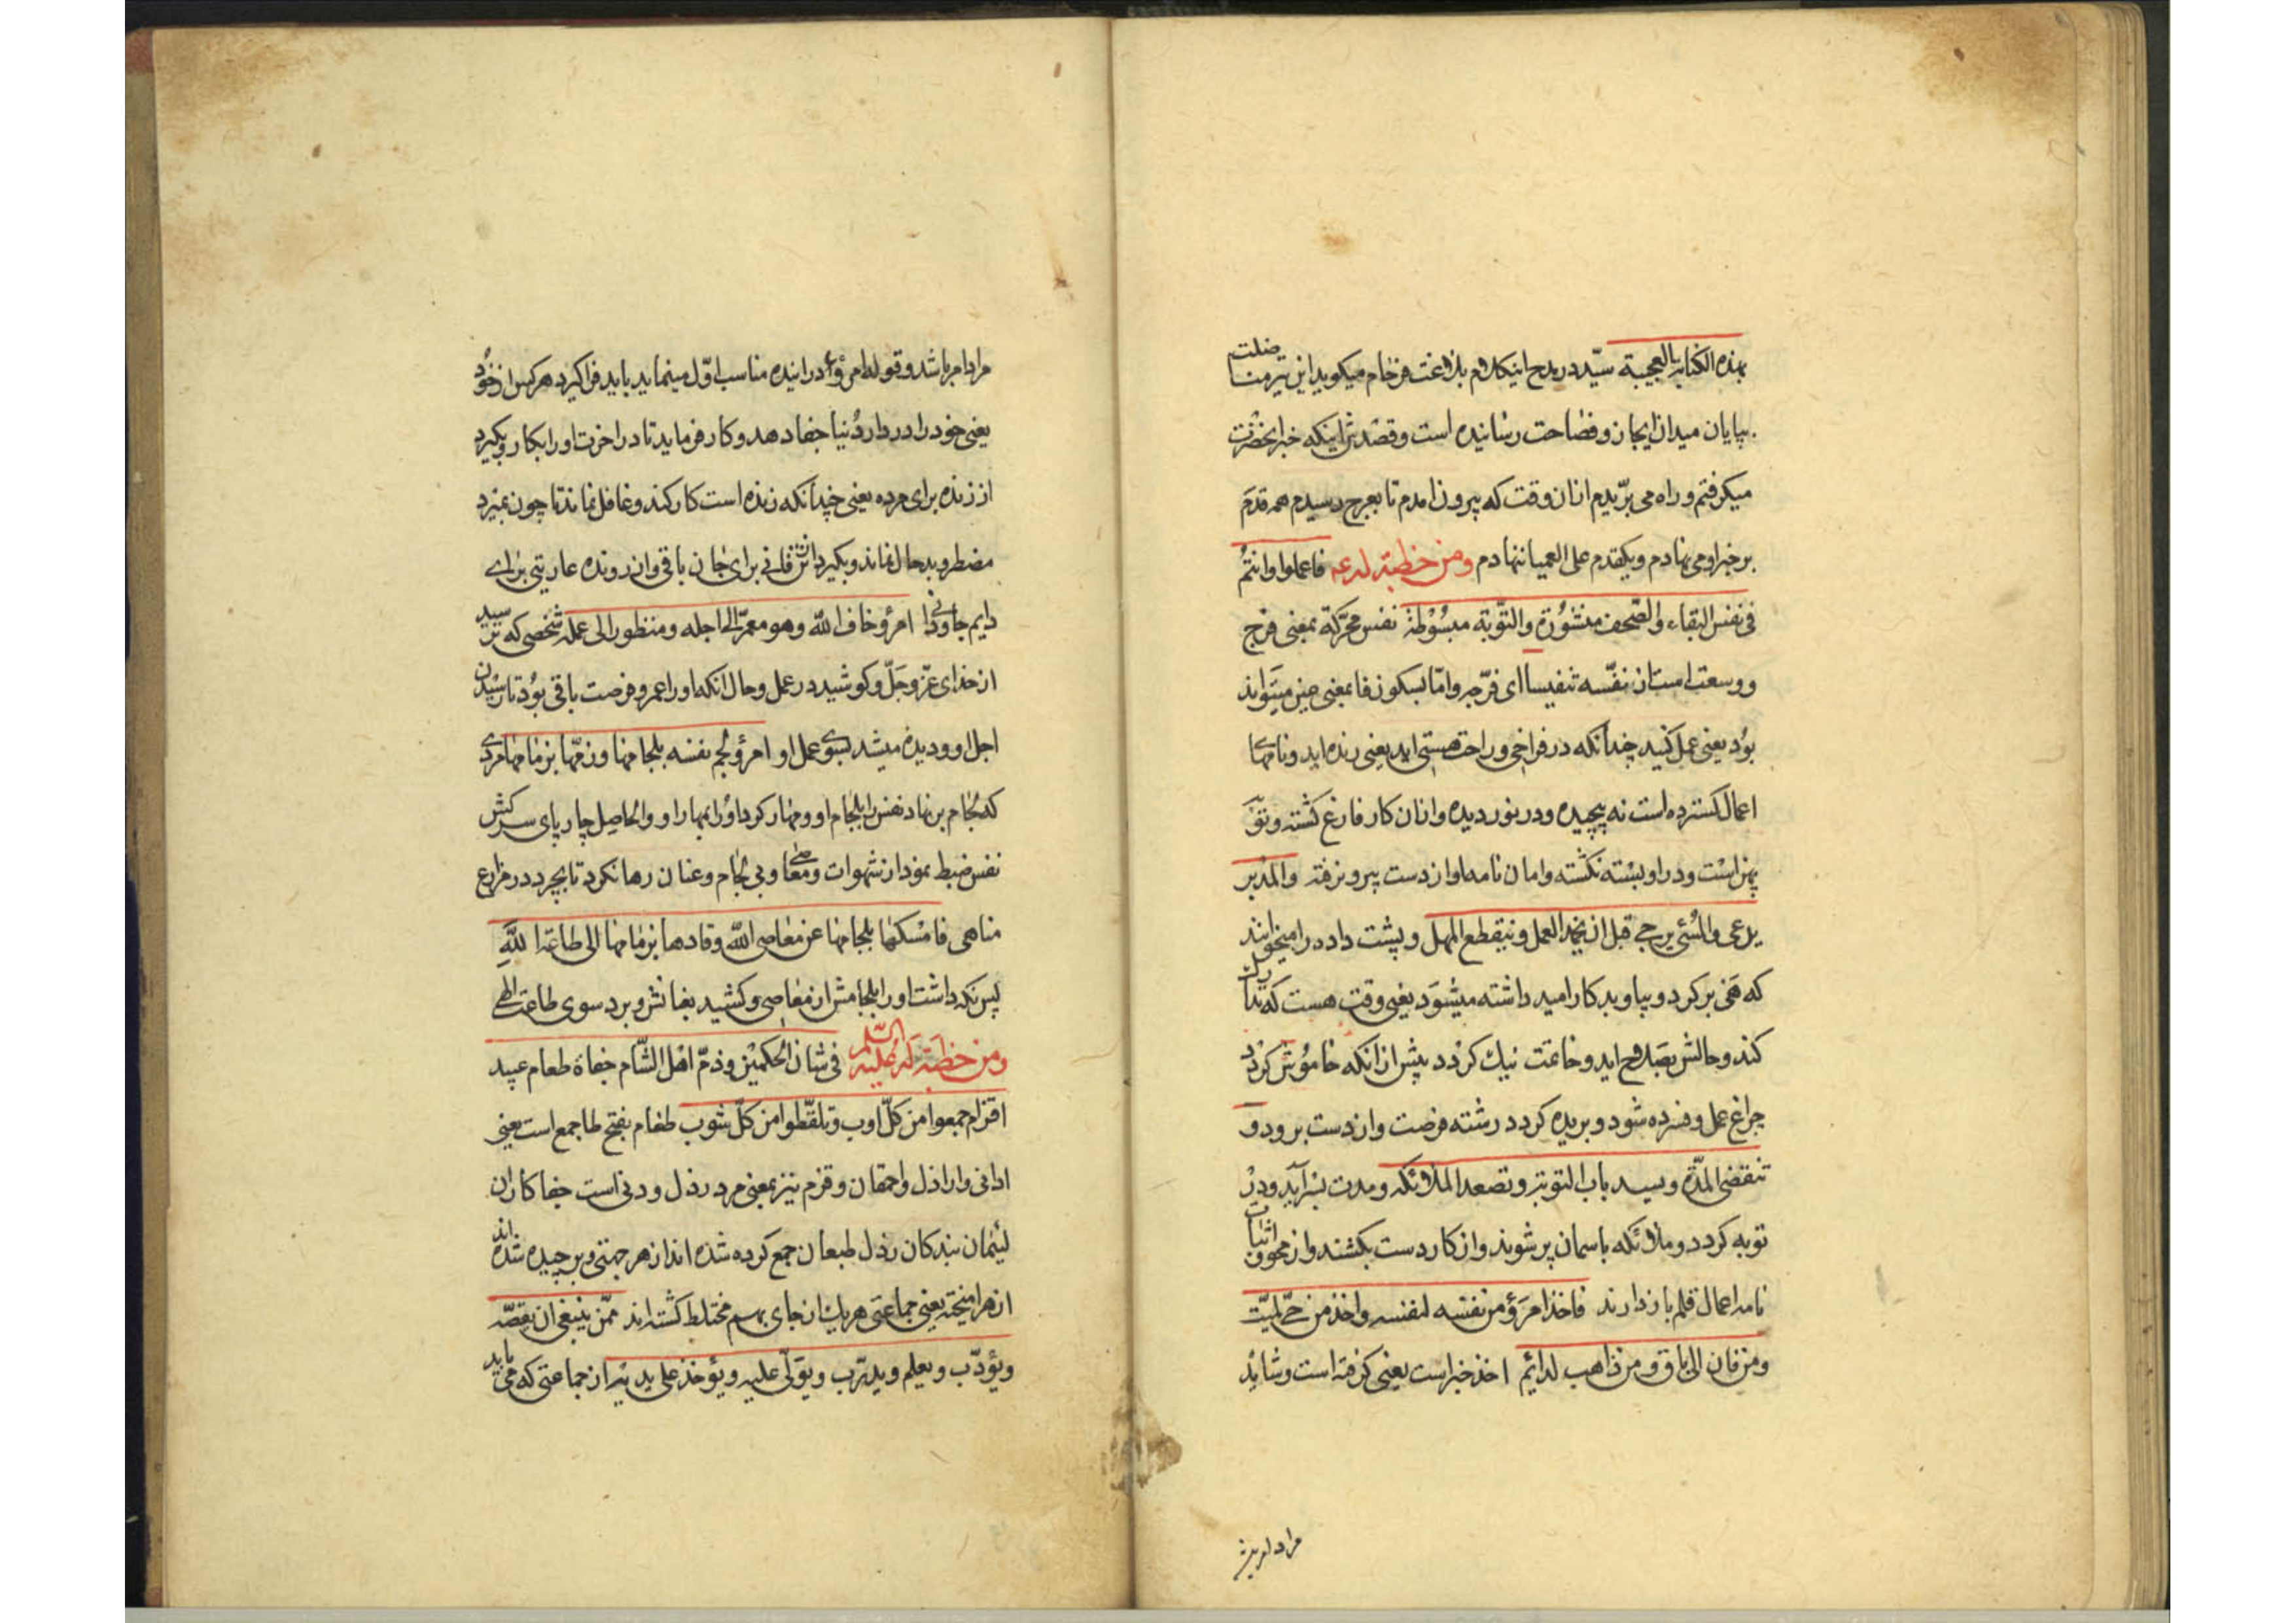 بهذه الکنایه العجیبة سیّد در مدح اینکلام بلاغت فرجام میکوید این تیر مناضلت
بپایان میدان ایجاز و فصاحت رسانیده است و قصدش اینکه خبر انحضرت
میکرفتم و راه می بریدم ازان وقت که بیرون امدم تا بعرج رسیدم همه قدم
بر خبر او می نهادم و یکقدم علی العمیا ننهادم ومن خطبة له ع فاعملوا وانتم
فی نفس البقاء والصّحف منشورة والتّوبة مبسوطة نفس محرّکة بمعنی فرج
و وسعت است از نفّسه تنفیسا ای فرّجه وامّا بسکون فا بمعنی حین میتواند
بود یعنی عمل کنید چندانکه در فراخی و راحت هستی اید یعنی زنده اید و نامهای
اعمال کسترده است نه پیچیده و در نوردیده و ازان کار فارغ کشته و توبه
پهن است و در او بسته نکشته و امان نامه او از دست بیرون نرفته والمدبر
یدعی والمسئ یرجی قبل ان یخمد العمل وینقطع المهل و پشت داده را میخوانند
که هی برکرد و بیا و بد کار امید داشته میشود یعنی وقت هست که تدارک
کند و حالش بصلاح اید و خاتمت نیك کردد پیش از انکه خاموش کردد
چراغ عمل و فسرده شود و بریده کردد رشته فرصت و از دست برود و
تنقضی المدّة ویسد باب التوبة وتصعد الملائکه و مدت بسر آید و در
توبه کردد و ملائکه باسمان بر شوند و از کار دست بکشند و از محو و اثبات
نامه اعمال قلم باز دارند فاخذ امرؤ من نفسه لنفسه واخذ من حیّ لمیّت
ومن فان الی باق ومن ذاهب لدائم اخذ خبر است یعنی کرفته است و شاید
مراد امر باشد
مراد امر باشد و قوله امرؤ در اینده مناسب اوّل مینماید باید فرا کیرد هر کس از خود
یعنی خود را در دار دنیا جفا دهد و کار فرماید تا در اخرت او را بکار و بکیرد
از زنده برای مرده یعنی چندانکه زنده است کار کند و غافل نماند تا چون بمیرد
مضطر و بد حال نماند و بکیرد از فانی برای جان باقی و از رونده عاریتی برای
دایم جاودانی امرؤ خاف الله وهو معمّر الی اجله ومنظور الی عمله شخصی که ترسید
از خدای عزّ و جلّ و کوشید در عمل و حال انکه او را عمر و فرصت باقی بود تا رسیدن
اجل او و دیده میشد بسوی عمل او امرؤ لجم نفسه بلجامها وزمّها بزمامها مردی
که لجام بر نهاد نفس را بلجام او و مهار کرد او را بمهار او و الحاصل چارپای سرکش
نفس ضبط نمود از شهوات و معاصی و بی لجام و عنان رها نکرد تا بچرد در مزارع
مناهی فامسکها بلجامها عن معاصی الله وقادها بزمامها الی طاعة الله
پس نکه داشت او را بلجامش از معاصی و کشید بعنانش و برد سوی طاعت الهی
ومن خطبة له علیه السّلم فی شان الحکمین وذمّ اهل الشّام جفاة طغام عبید
اقزام جمعوا من کلّ اوب وتلقّطوا من کلّ شوب طغام بفتح طا جمع است یعنی
ادانی و اراذل و احمقان و قزم نیز بمعنی مرد رذل و دنی است جفاکاران
لئیمان بندکان رذل طبعان جمع کرده شده اند از هر جهتی و بر چیده شده اند
از هر امیخته یعنی جماعتی هریك از جای بهم مختلط کشته اند ممّن ینبغی ان یفقّه
ویؤدّب ویعلم ویدرّب ویولّی علیه ویؤخذ علی یدیه از جماعتی که می باید